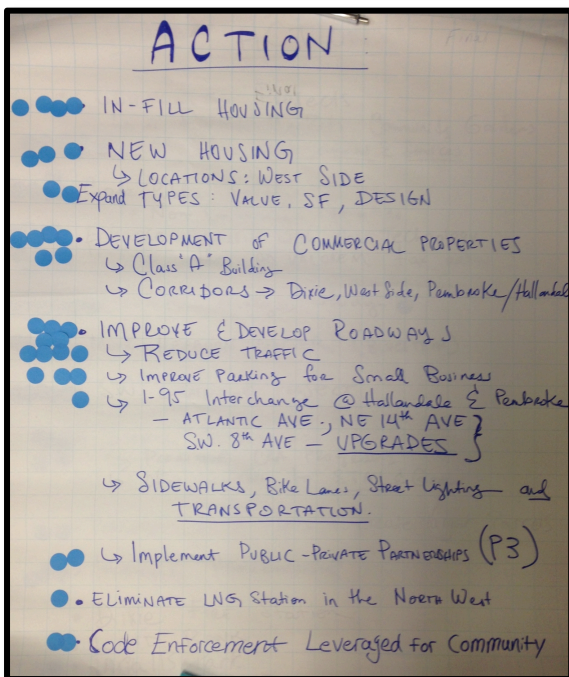 ACTION
• IN-FILL HOUSING
• NEW HOUSING
↳ LOCATIONS: WEST SIDE
Expand TYPES: VALUE, SF, DESIGN
• DEVELOPMENT of COMMERCIAL PROPERTIES
↳ Class "A" Building
↳ CORRIDORS → Dixie, West Side, Pembroke/Hallandale
• IMPROVE & DEVELOP ROADWAYS
↳ REDUCE TRAFFIC
↳ IMPROVE Parking for Small Business
↳ I-95 Interchange @ Hallandale & Pembroke
– ATLANTIC AVE., NE 14th AVE
SW. 8th AVE – UPGRADES }
↳ SIDEWALKS, Bike Lanes, Street Lighting and
TRANSPORTATION.
↳ Implement PUBLIC-PRIVATE PARTNERSHIPS (P3)
• ELIMINATE LNG Station in the NORTH WEST
• Code Enforcement Leveraged for Community